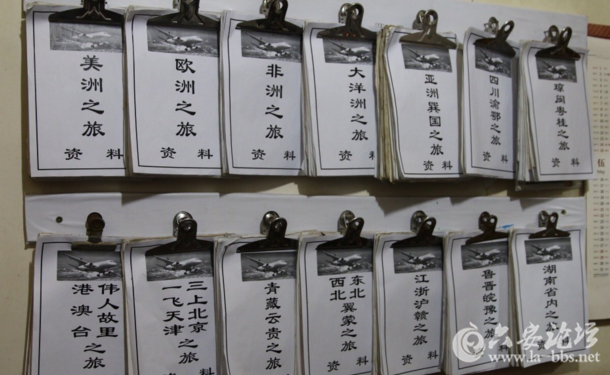 美洲之旅
资料
欧洲之旅
资料
非洲之旅
资料
大洋洲之旅
资料
亚洲巽国之旅
资料
四川渝鄂之旅
资料
琼闽粤桂之旅
资料
伟人故里
港澳台之旅
三上北京
一飞天津之旅
青藏云贵之旅
资
东北
西北翼蒙之旅
资
江浙沪赣之旅
资料
鲁晋皖豫之旅
资
湖南省内之旅
资料
六安论坛
www.la-bbs.net